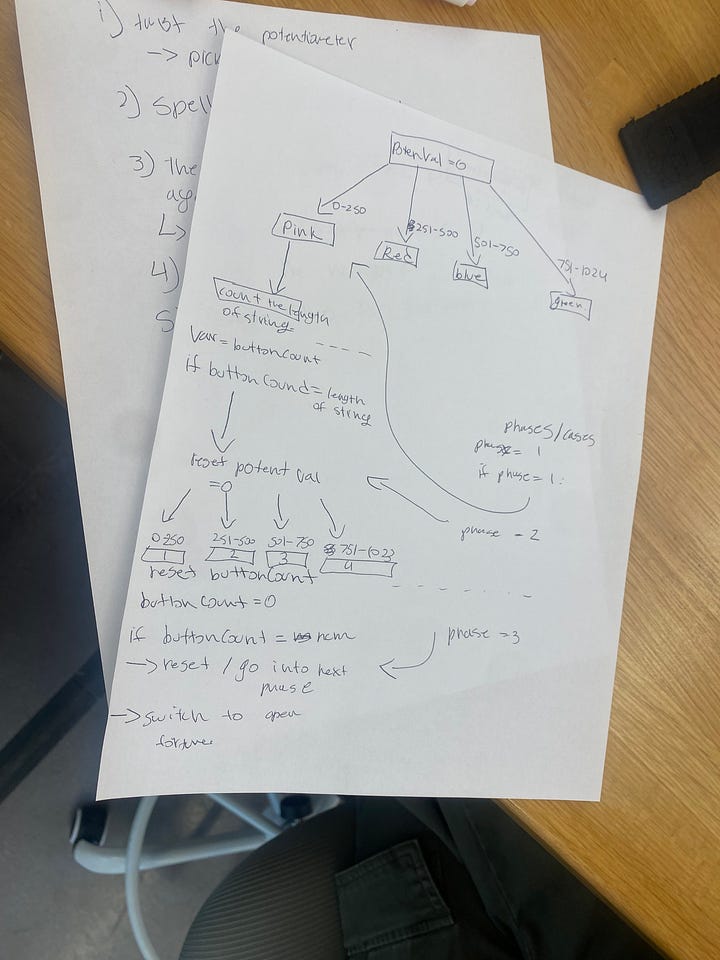 1) twist the potentiameter
-> pick
2) Spell
3) The
ag
4)
S
PotenVal = 0
0-250
251-500
501-750
751-1024
Pink
Red
blue
green
count the length
of string
Var = buttonCount
if button Cound = length
of string
phases/cases
phase = 1
if phase = 1:
reset potent val
= 0
phase = 2
0-250
251-500
501-750
751-1023
1
2
3
4
reset buttonCount
buttonCount = 0
if buttonCount = num
phase = 3
-> reset / go into next
phase
-> switch to open
fortune